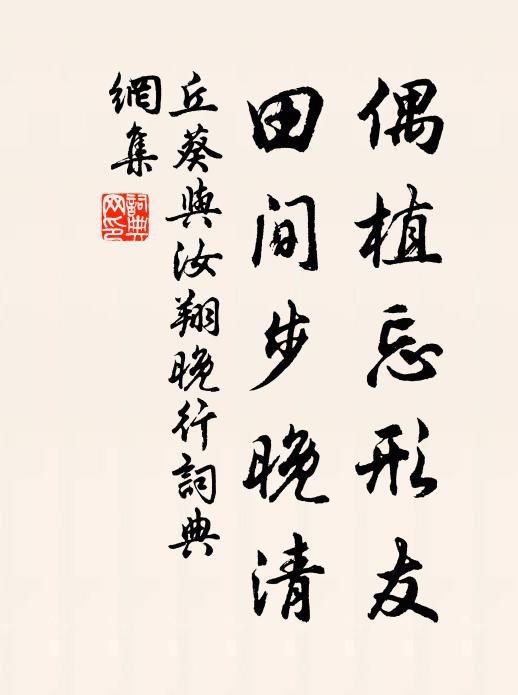 偶植忘形友
田间步晚清
丘葵與汝翔晚行詞典
網集
詞典
网印